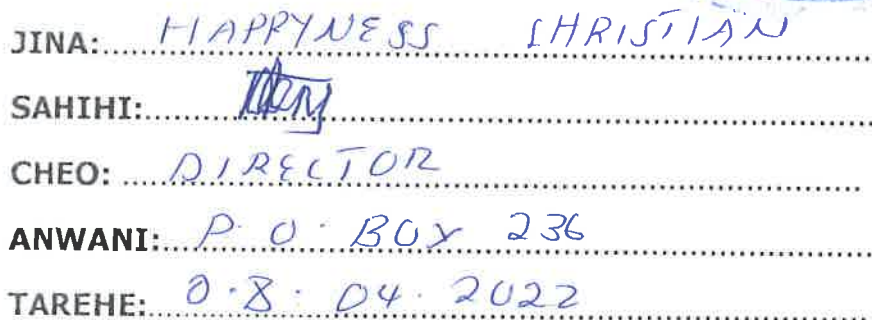 JINA: HAPPYNESS CHRISTIAN
SAHIHI:
CHEO: DIRECTOR
ANWANI: P. O. BOX 236
TAREHE: 08. 04. 2022